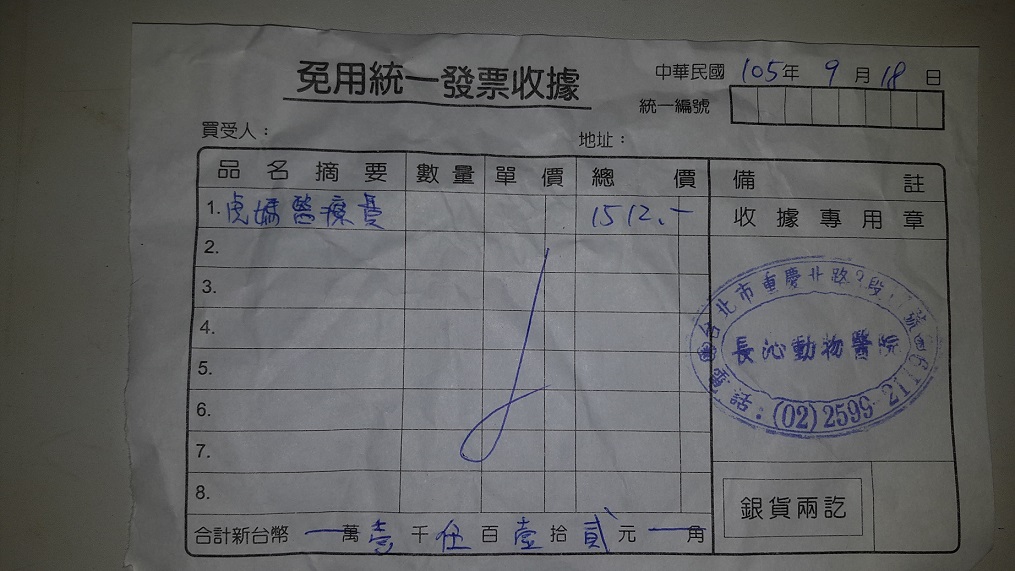 免用統一發票收據
中華民國 105年 9月 18日
統一編號
買受人： 地址：
品名摘要 數量 單價 總價 備註
1. 虎媽醫療費 1512.- 收據專用章
2.
3.
4.
5.
6.
7.
8.
台北市重慶北路 段 號
長沁動物醫院
電話：(02)2599
銀貨兩訖
合計新台幣 一萬壹千伍百壹拾貳元一角